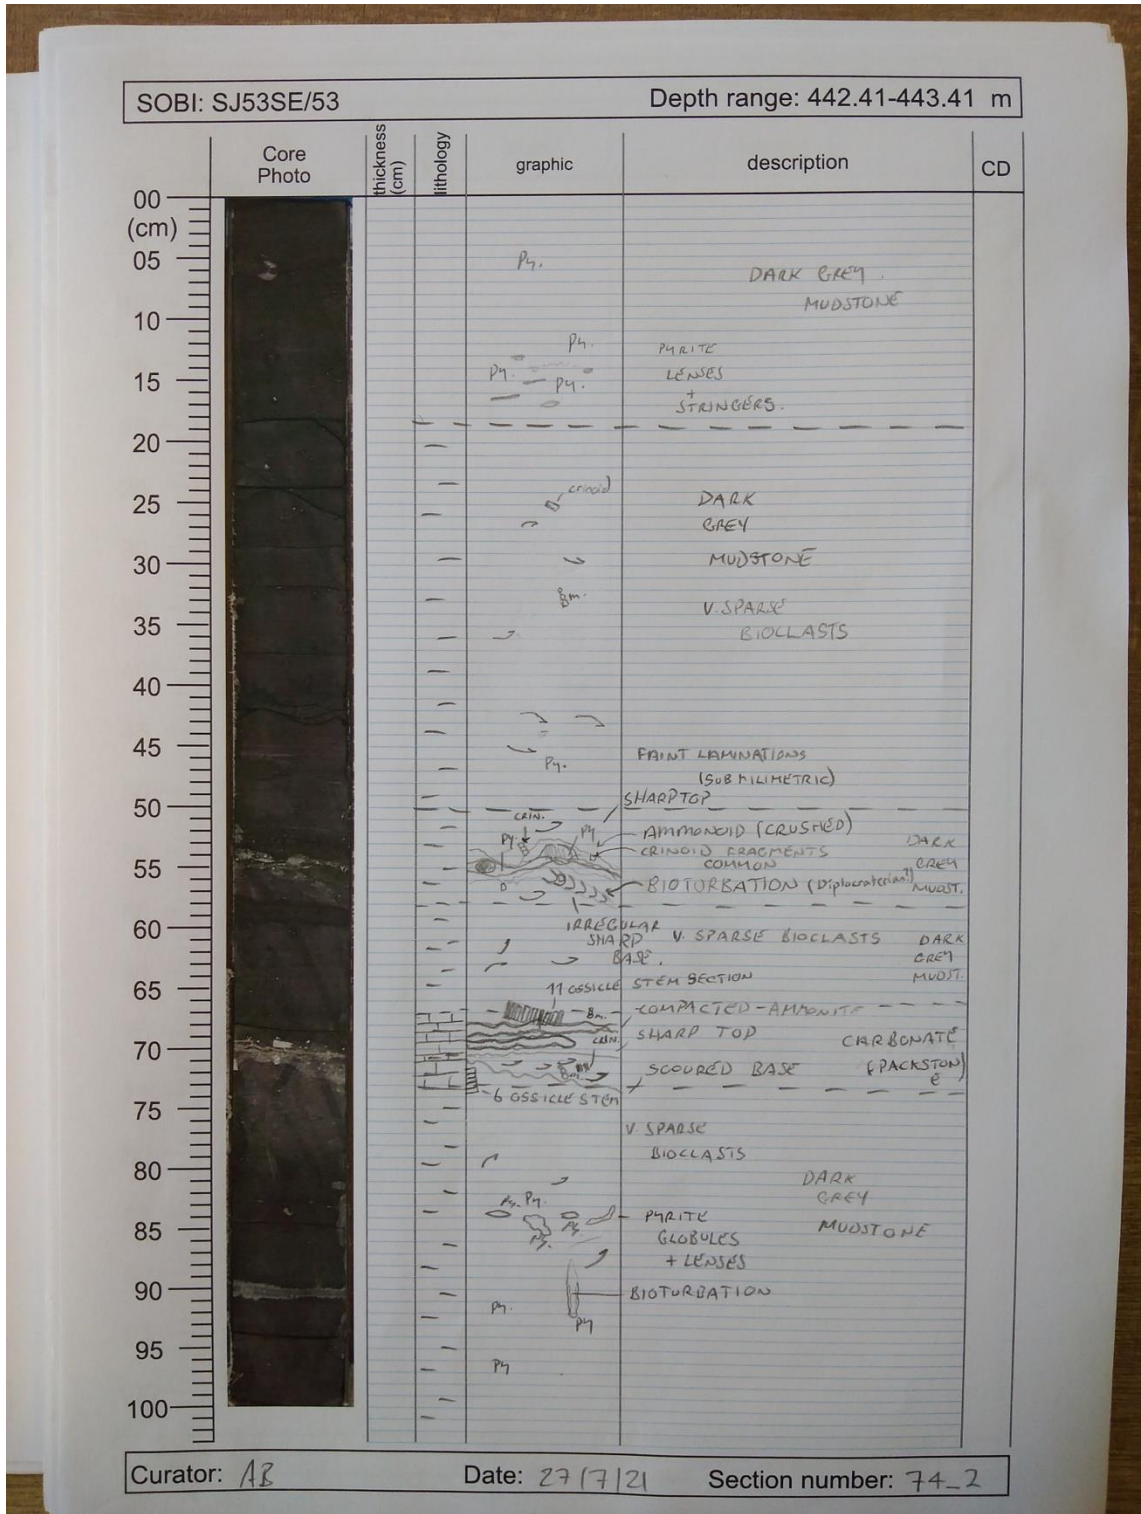 SOBI: SJ53SE/53
Depth range: 442.41-443.41 m
Core
Photo
thickness
(cm)
lithology
graphic
description
CD
00
(cm)
05
10
15
20
25
30
35
40
45
50
55
60
65
70
75
80
85
90
95
100
Py.
DARK GREY.
MUDSTONE
Py.
PYRITE
Py.
LENSES
Py.
+
STRINGERS.
crinoid
DARK
GREY
MUDSTONE
Bm.
V. SPARSE
BIOCLASTS
FAINT LAMINATIONS
Py.
(SUB MILIMETRIC)
SHARP TOP
CRIN.
Py
Py
AMMONOID (CRUSHED)
DARK
CRINOID FRAGMENTS
COMMON
GREY
BIOTURBATION (Diplocraterion?)
MUDST.
IRREGULAR
SHARP
BASE.
V. SPARSE BIOCLASTS
DARK
GREY
MUDST.
11 OSSICLE STEM SECTION
Bm.
COMPACTED - AMMONITE
CRIN.
SHARP TOP
CARBONATE
Bm
SCOURED BASE
(PACKSTON
E
6 OSSICLE STEM
V. SPARSE
BIOCLASTS
DARK
GREY
MUDSTONE
Py.
Py.
Py.
Py.
PYRITE
GLOBULES
+ LENSES
BIOTURBATION
Py.
Py
Py
Curator: AB
Date: 27/7/21
Section number: 74_2